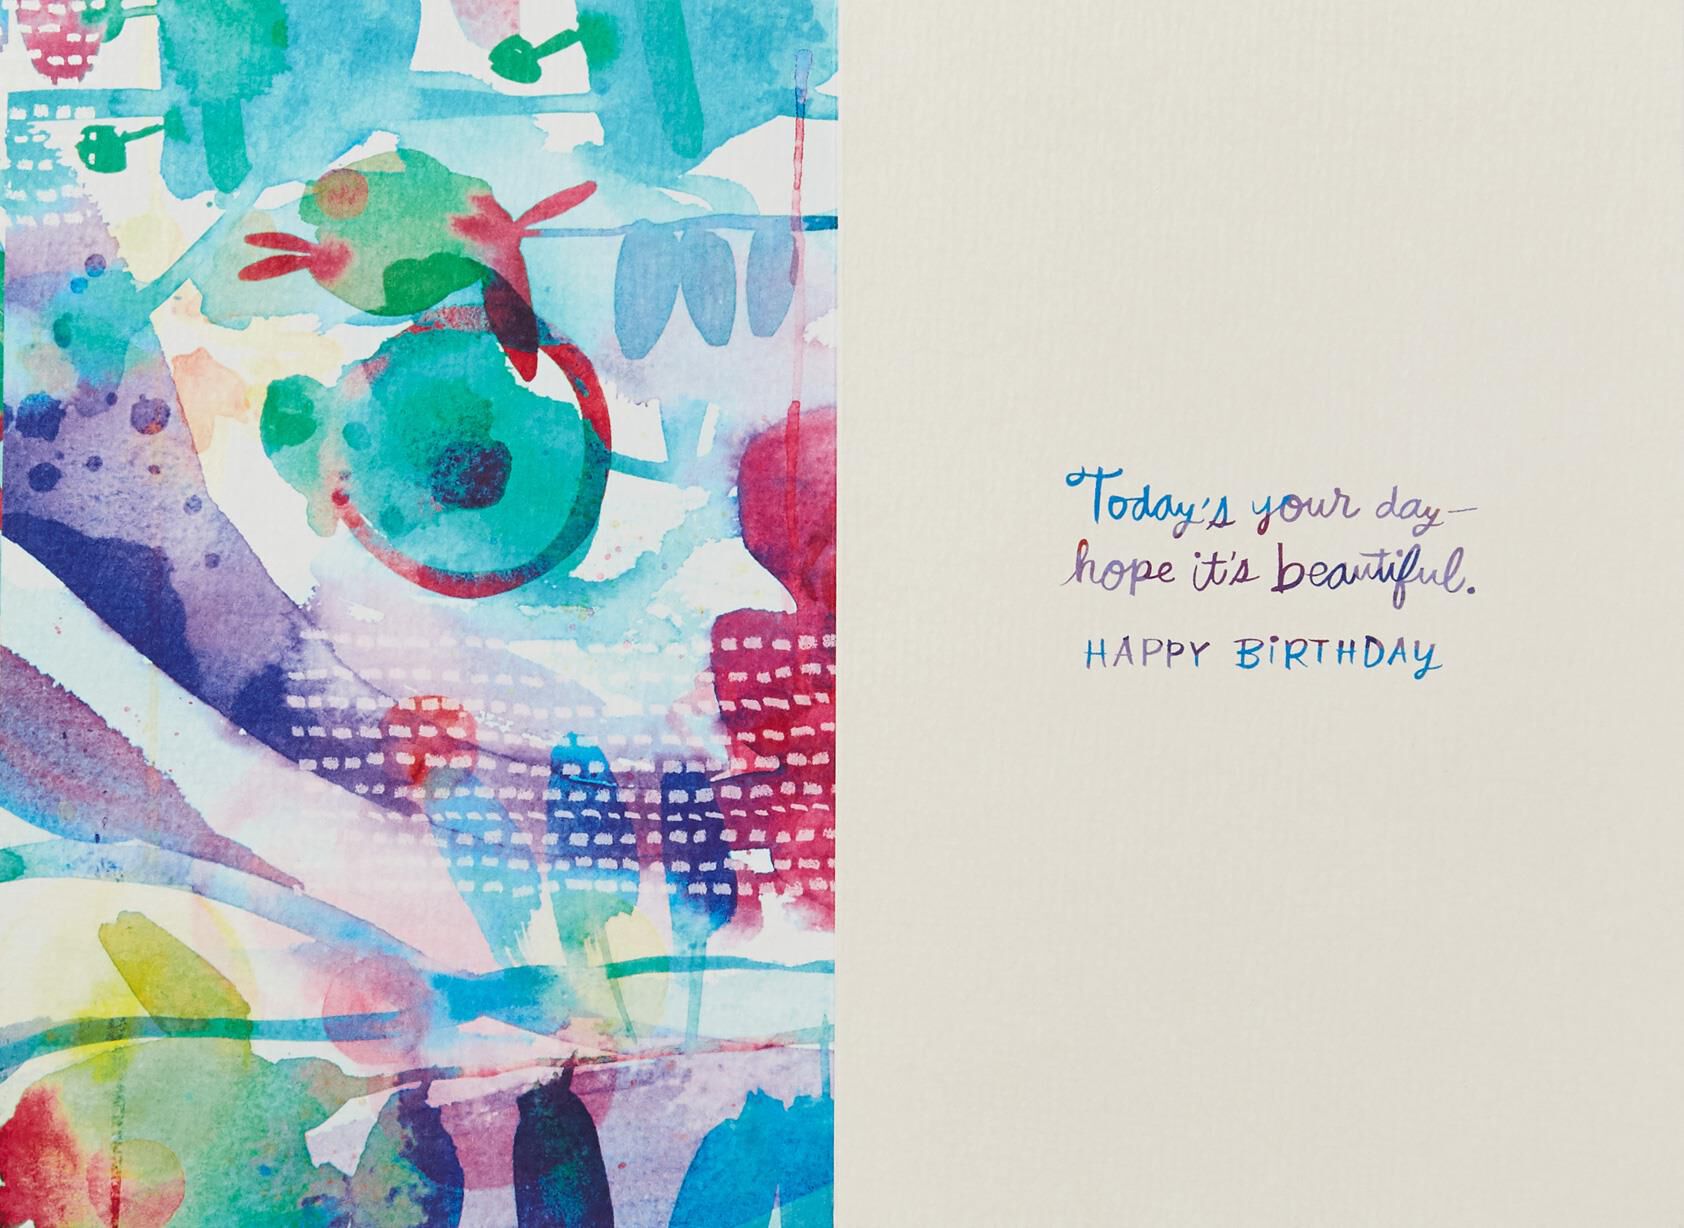 Today's your day—
hope it's beautiful.
HAPPY BiRTHDAY